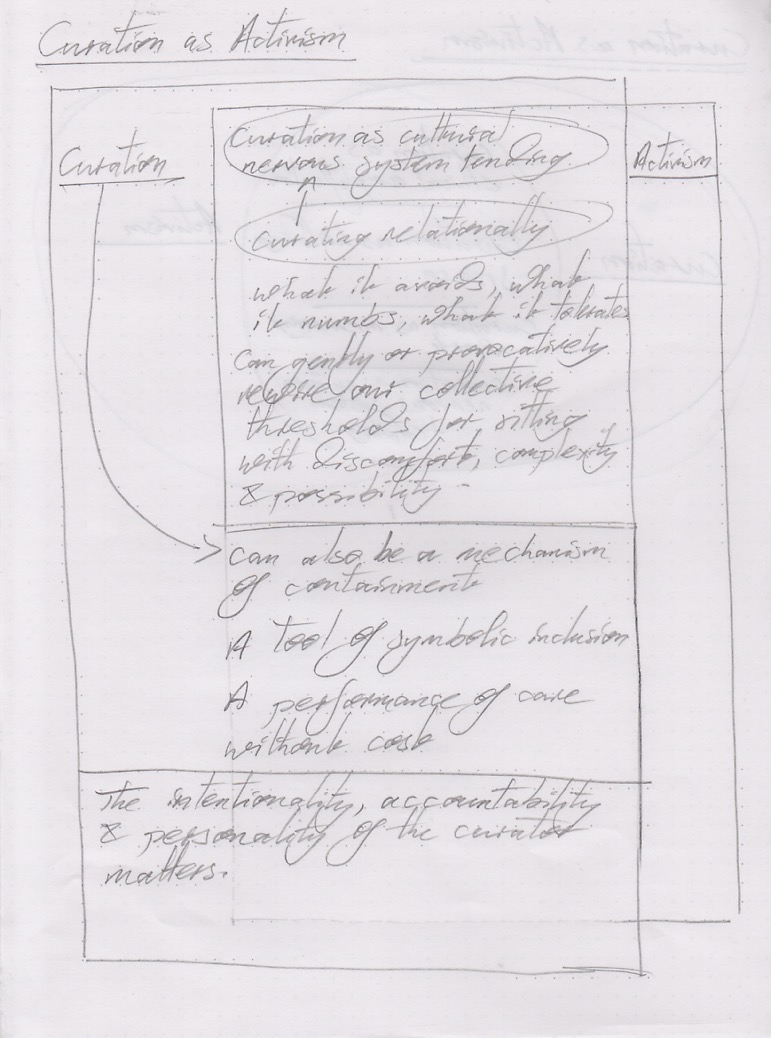 Curation as Activism
Curation
Curation as cultural
nervous system tending
Activism
curating relationally
what it avoids, what
it numbs, what it tolerates
can gently or provocatively
rewire our collective
thresholds for sitting
with discomfort, complexity
& possibility -
can also be a mechanism
of containment
A tool of symbolic inclusion
A performance of care
without cost
The intentionality, accountability
& personality of the curator
matters.